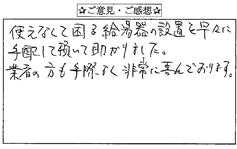 ☆ご意見・ご感想☆
使えなくて困る給湯器の設置を早々に
手配して頂いて助かりました。
業者の方も手際よく非常に喜んでおります。